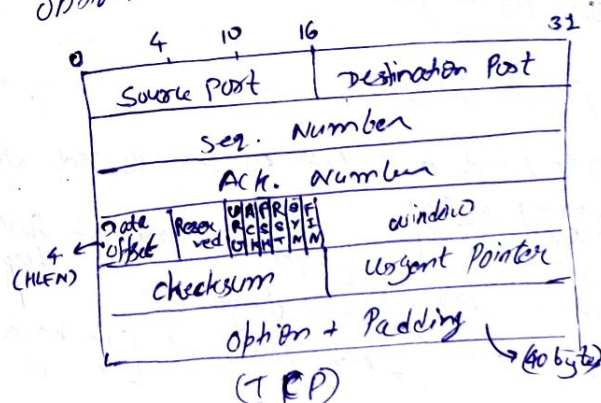 0 4 10 16 31
Source Port Destination Port
Seq. Number
Ack. Number
Data Offset Reserved URG ACK PSH RST SYN FIN window
4 (HLEN)
checksum Urgent Pointer
Option + Padding
(40 byte)
(TCP)